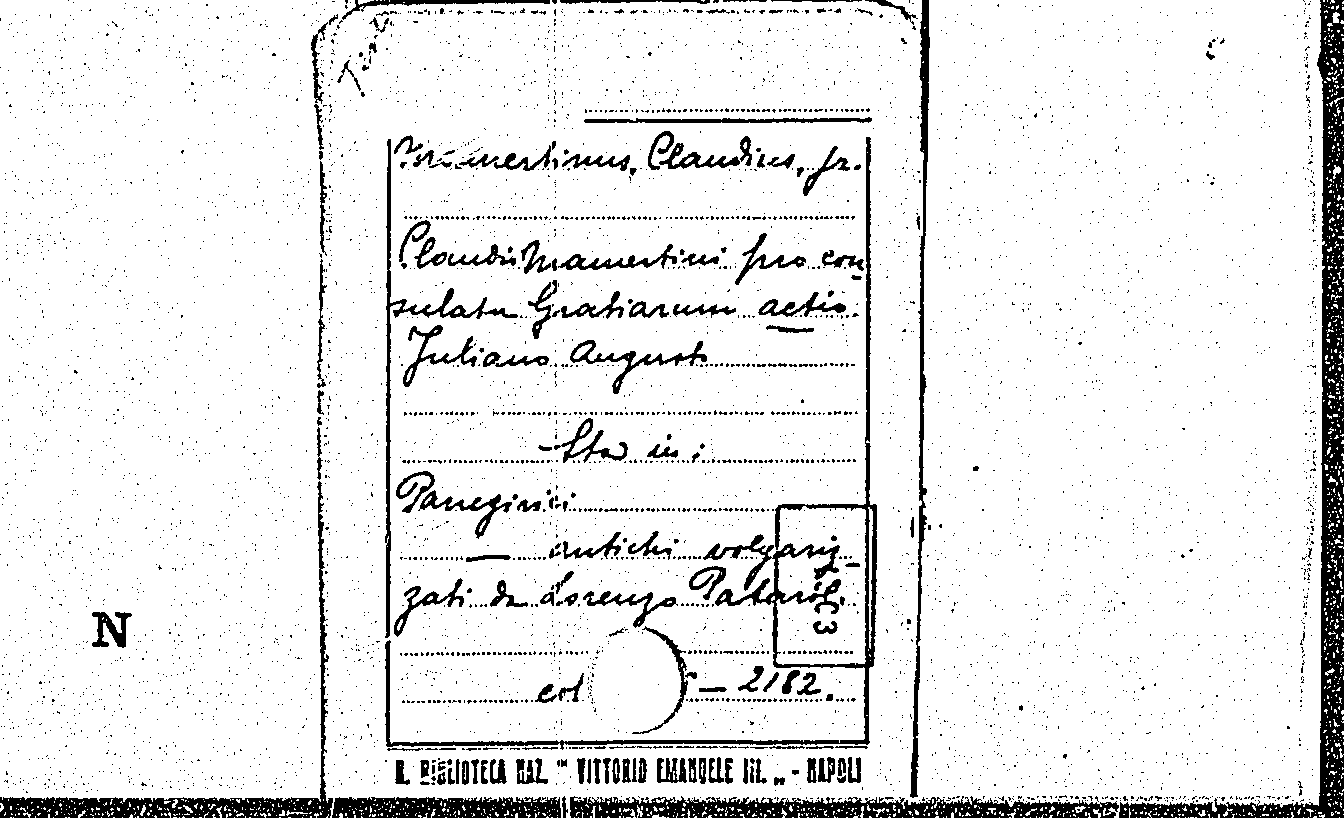 Mamertinus, Claudius, jr.
Claudii Mamertini pro con
sulatu Gratiarum actio
Juliano Augusto
- Sta in:
Panegirici
— antichi volgariz-
zati da Lorenzo Patarol.
C3
col — 2182.
R. BIBLIOTECA NAZ. " VITTORIO EMANUELE III. „ - NAPOLI
N